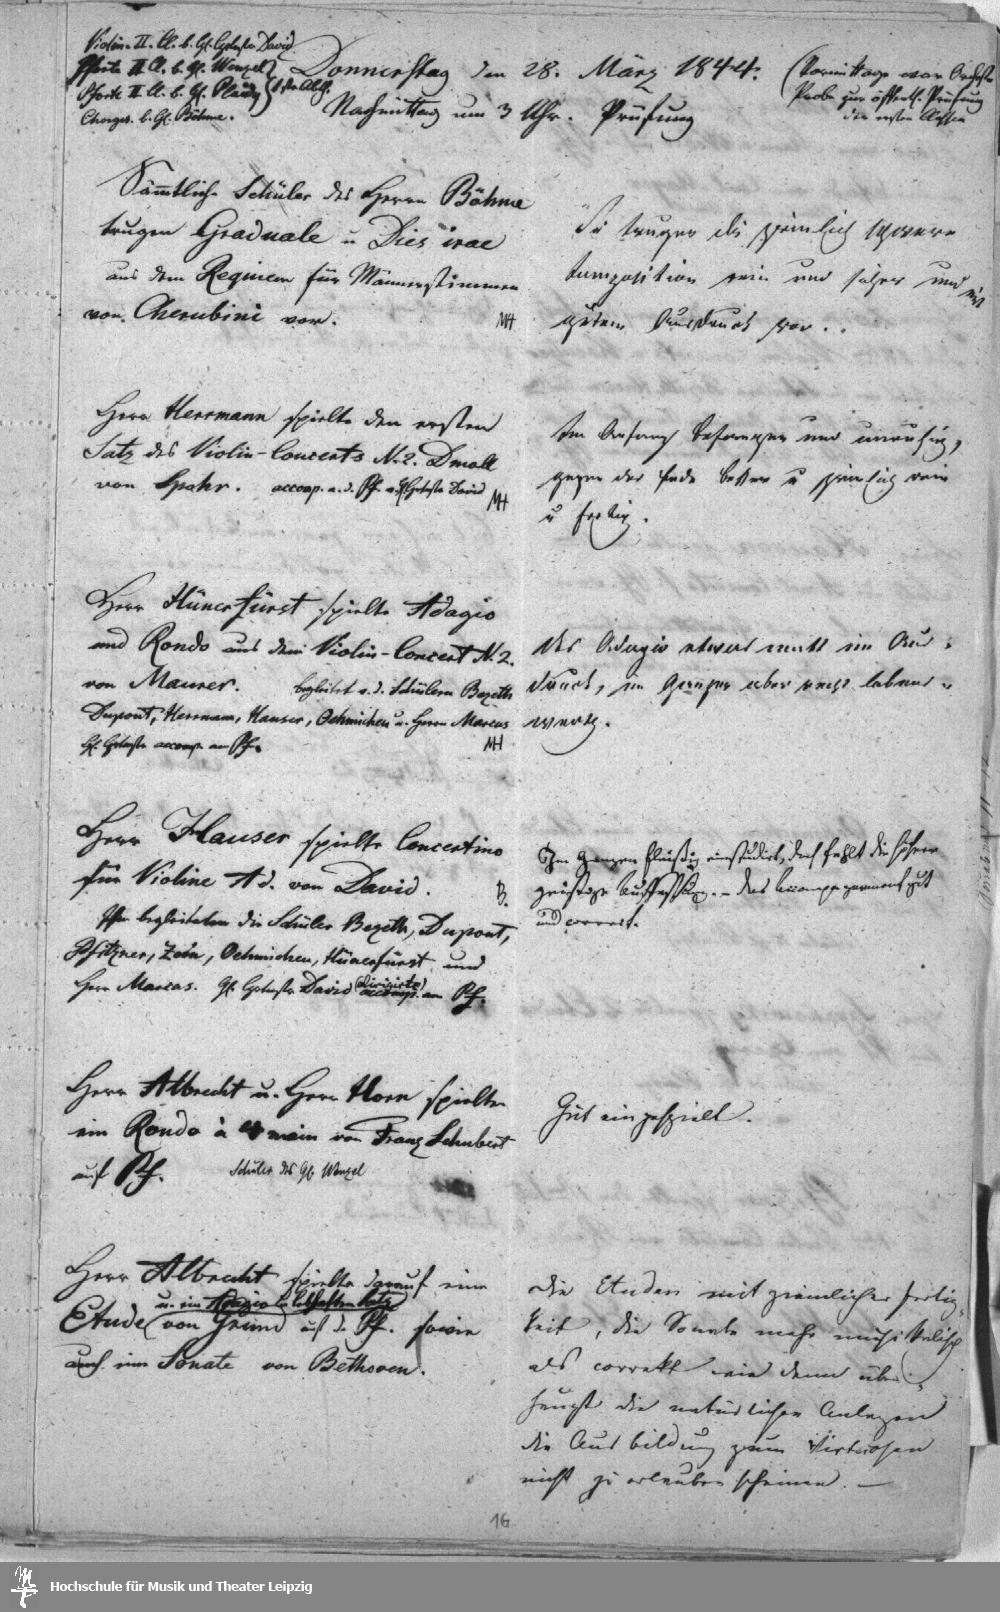 Violin-II. Cl. b. H. David
Pforte II Cl. b. H. Wenzel
Pforte II Cl. b. H. Plaidy
Chorges. b. H. Böhme.
Donnerstag den 28. März 1844.
Nachmittag um 3 Uhr. Prüfung
(Vormittags war Orchester
Probe zur öffentl. Prüfung
der ersten Classen
Sämmtliche Schüler des Herrn Böhme
trugen Graduale u Dies irae
aus dem Requiem für Männerstimmen
von Cherubini vor. MH
Sie trugen die ziemlich schwere
Composition rein und sicher und mit
gutem Ausdruck vor.
Herr Herrmann spielte den ersten
Satz des Violin-Concerts N. 2. Dmoll
von Spohr. accomp. a. d. Pf. v. David MH
Im Anfang befangen und unruhig,
gegen das Ende besser u ziemlich rein
u fertig.
Herr Hünerfürst spielte Adagio
und Rondo aus dem Violin-Concert N. 2.
von Maurer. begleitet v. d. Schülern Bezeth
Dupont, Herrmann, Hauser, Oehmichen u. Herrn Marcus
accomp. am Pf. MH
Das Adagio etwas matt im Aus-
druck, im Ganzen aber recht lobens-
werth.
Herr Hauser spielte Concertino
für Violine A d. von David. B.
Ihn begleiteten die Schüler Bezeth, Dupont,
Pfitzner, Zahn, Oehmichen, Hünerfürst und
Herr Marcus. David (dirigirte)
accomp. am Pf.
Im Ganzen fleißig einstudirt, doch fehlt die höhere
geistige Auffassung. – Das Accompagnement gut
und correct.
Herr Albrecht u. Herr Horn spielten
ein Rondo à 4 main von Franz Schubert
auf Pf. Schüler des H. Wenzel
Gut eingespielt.
Herr Albrecht spielte darauf eine
u. ein
Etude von Grund auf d. Pf. sowie
auch eine Sonate von Bethoven.
Die Etuden mit ziemlicher Fertig-
keit, die Sonate mehr musikalisch
als correkt wie denn über-
haupt die natürlichen Anlagen
die Ausbildung zum Virtuosen
nicht zu erlauben scheinen. —
16
Hochschule für Musik und Theater Leipzig